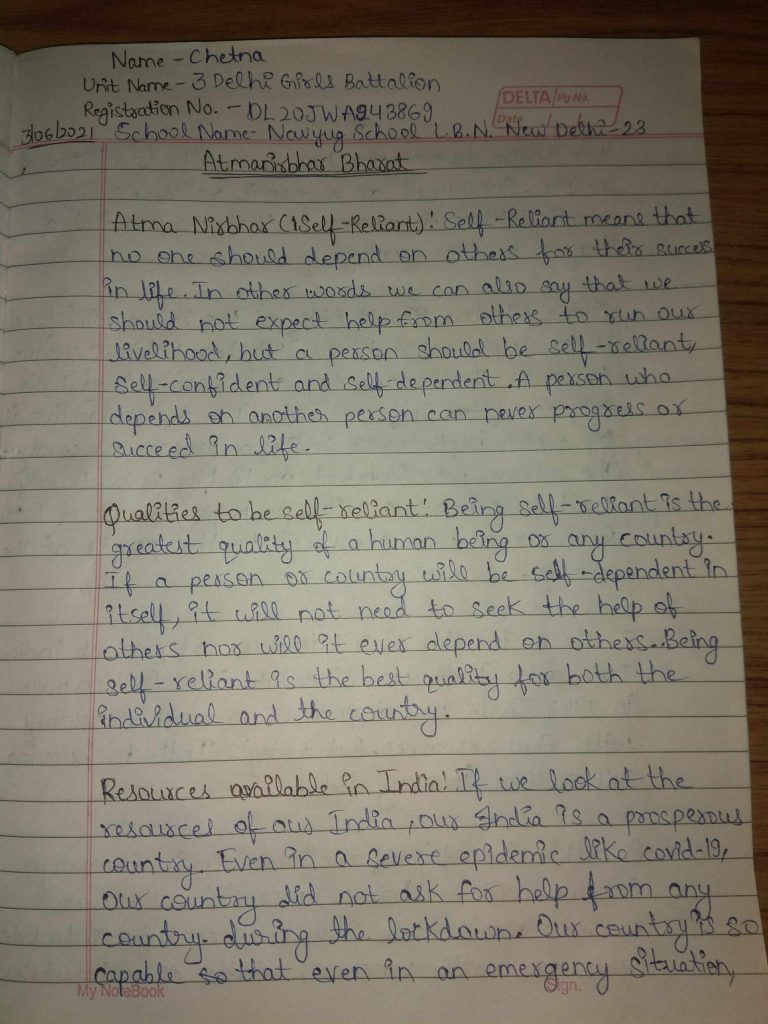 Name - Chetna
Unit Name - 3 Delhi Girls Battalion
Registration No. - DL20JWA243869
DELTA Pg No.
Date / /
3/06/2021 School Name- Navyug School L.B.N. New Delhi-23
Atmanirbhar Bharat
Atma Nirbhar (Self-Reliant): Self-Reliant means that
no one should depend on others for their success
in life. In other words we can also say that we
should not expect help from others to run our
livelihood, but a person should be self-reliant,
self-confident and self-dependent. A person who
depends on another person can never progress or
succeed in life.
Qualities to be self-reliant: Being self-reliant is the
greatest quality of a human being or any country.
If a person or country will be self-dependent in
itself, it will not need to seek the help of
others nor will it ever depend on others. Being
self-reliant is the best quality for both the
individual and the country.
Resources available in India: If we look at the
resources of our India, our India is a prosperous
country. Even in a severe epidemic like covid-19,
our country did not ask for help from any
country. during the lockdown. Our country is so
capable so that even in an emergency situation,
My NoteBook
Sign.